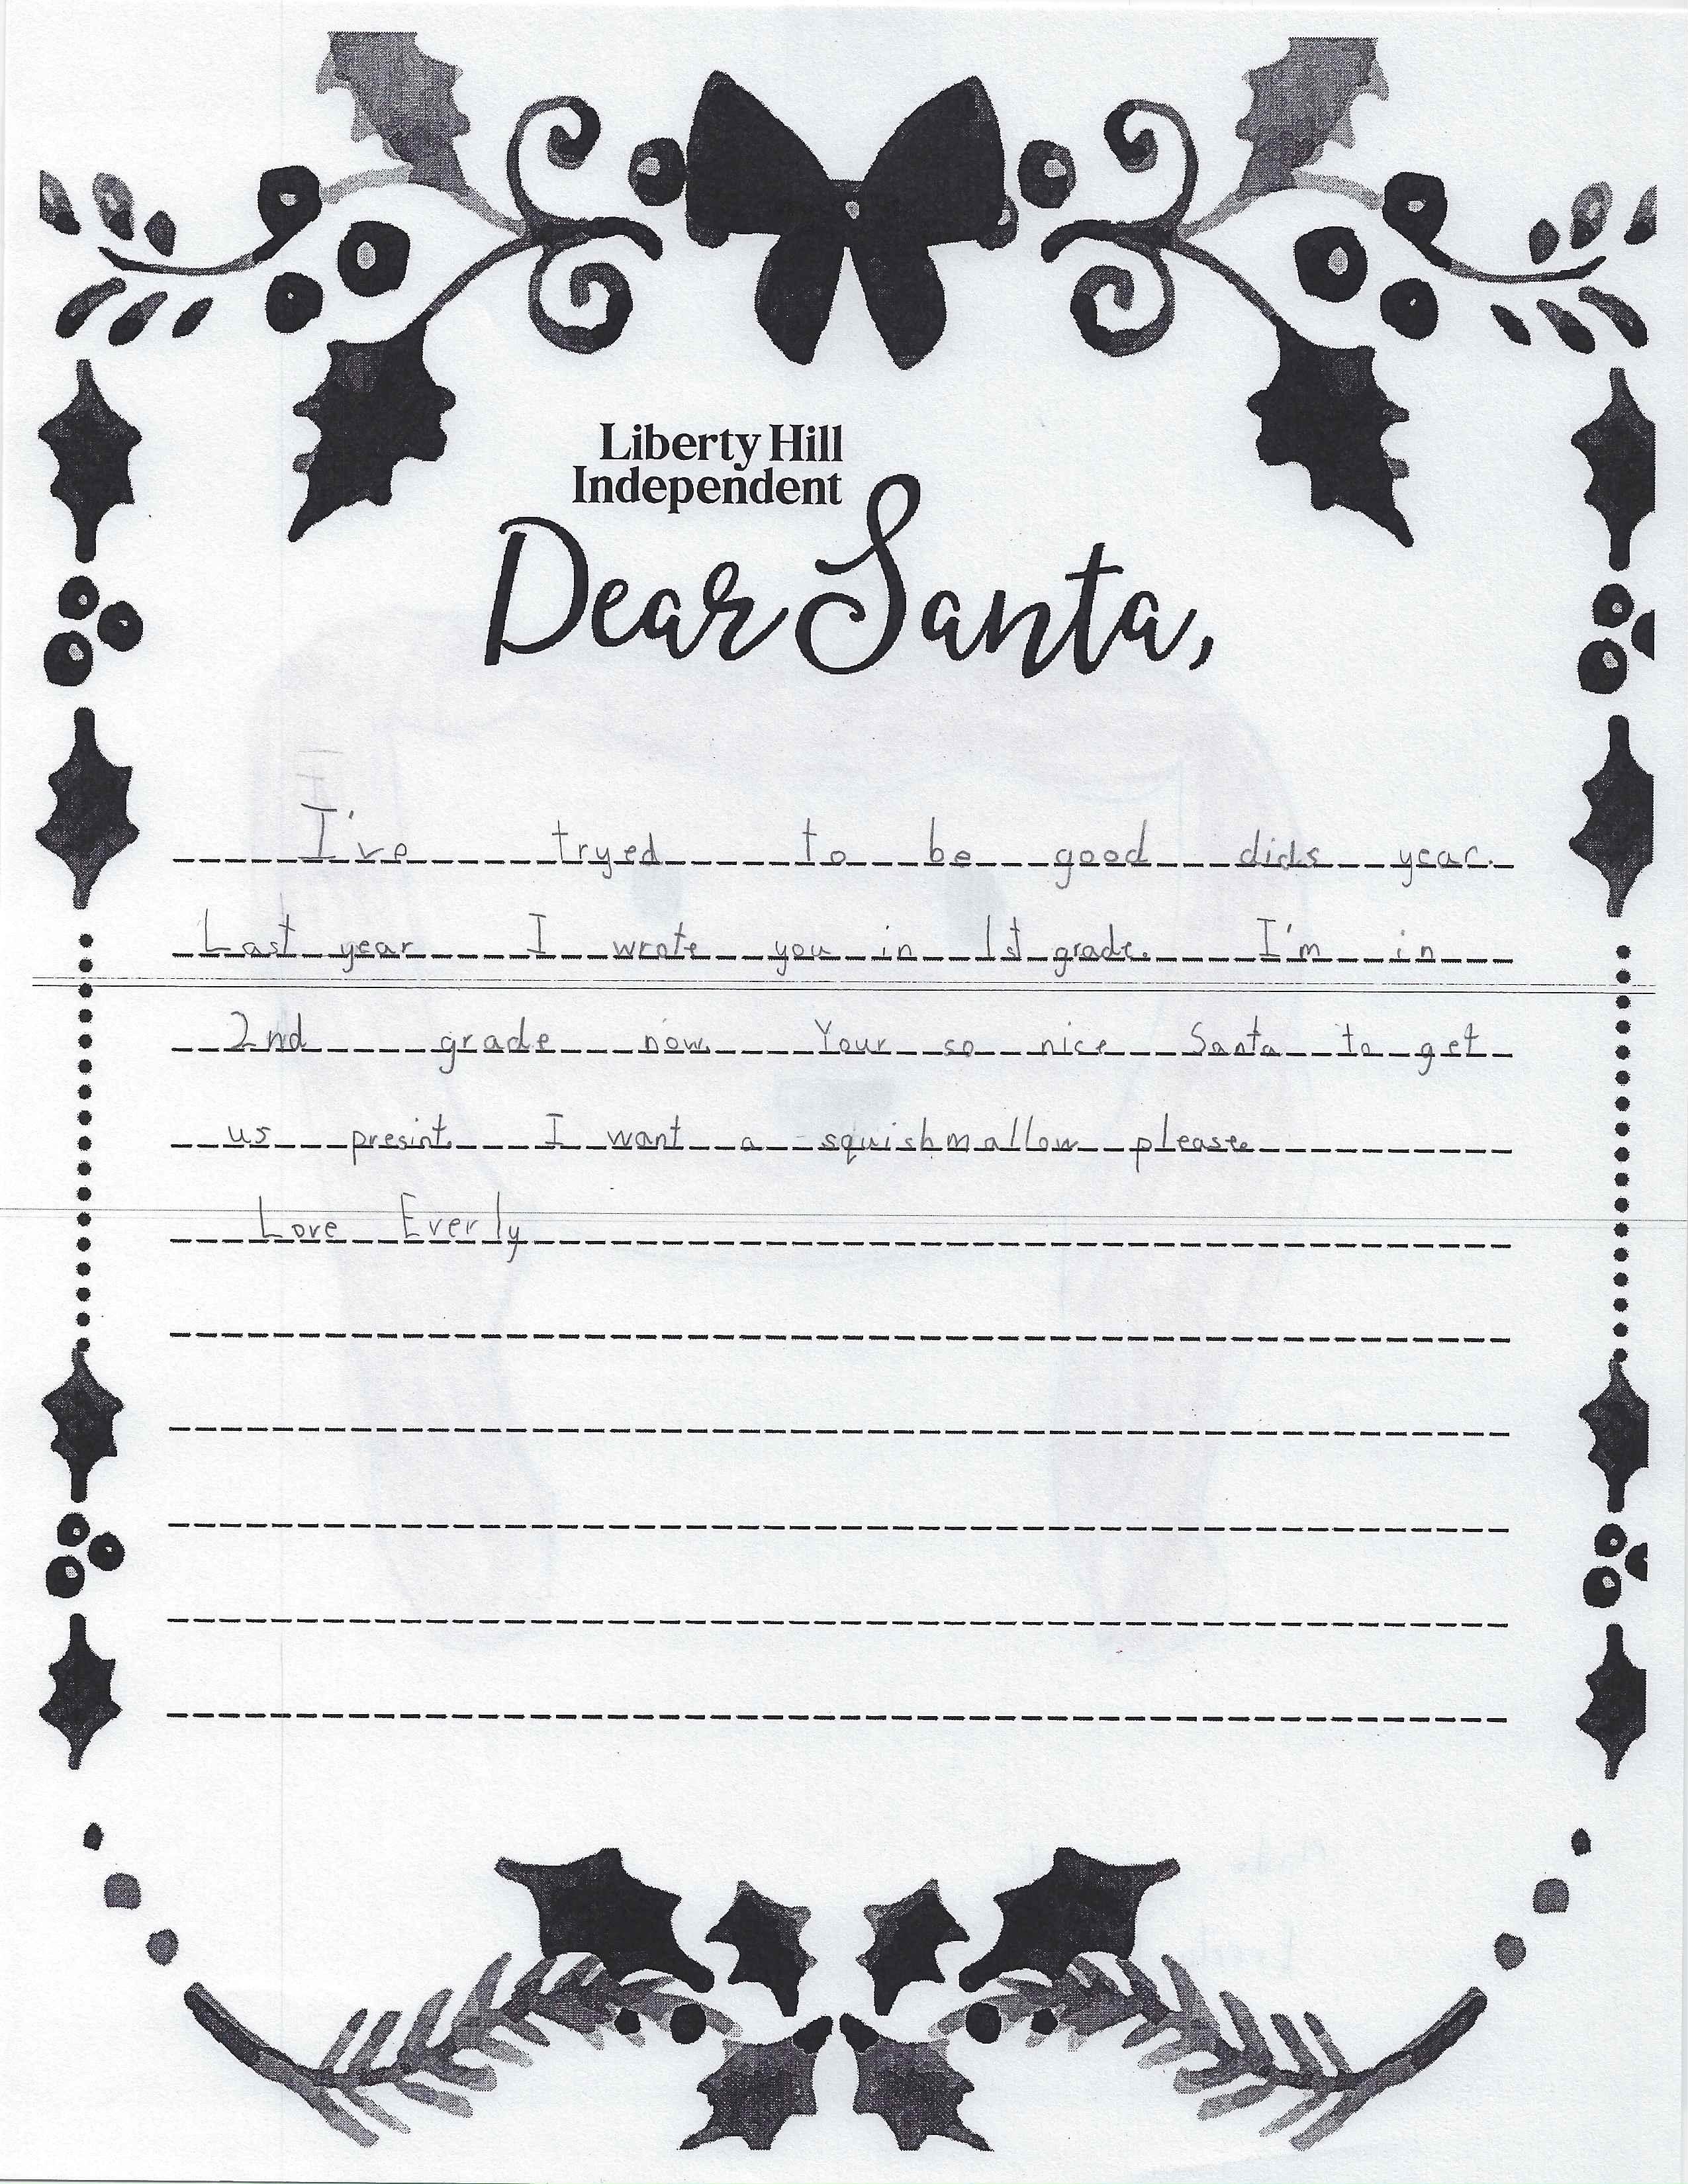 Liberty Hill
Independent
Dear Santa,
I've tryed to be good dids year.
Last year I wrote you in 1st grade. I'm in
2nd grade now. Your so nice Santa to get
us presint. I want a squishmallow please.
Love Everly